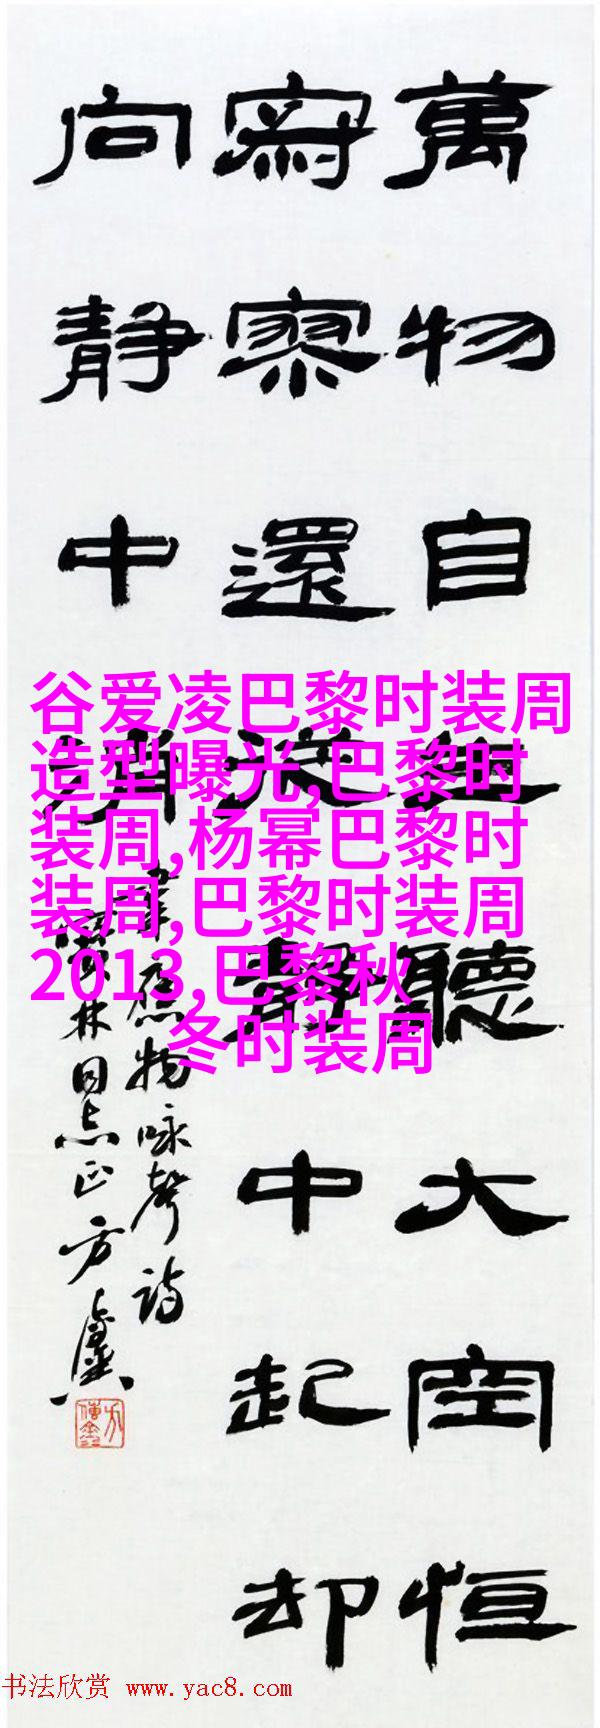 萬物自生聽大空恒
寂寥還從靜中起却
向静中消
韋應物咏聲詩
寶林同志正方
谷爱凌巴黎时装周
造型曝光,巴黎时
装周,杨幂巴黎时
装周,巴黎时装周
2013,巴黎秋
冬时装周
书法欣赏 www.yac8.com